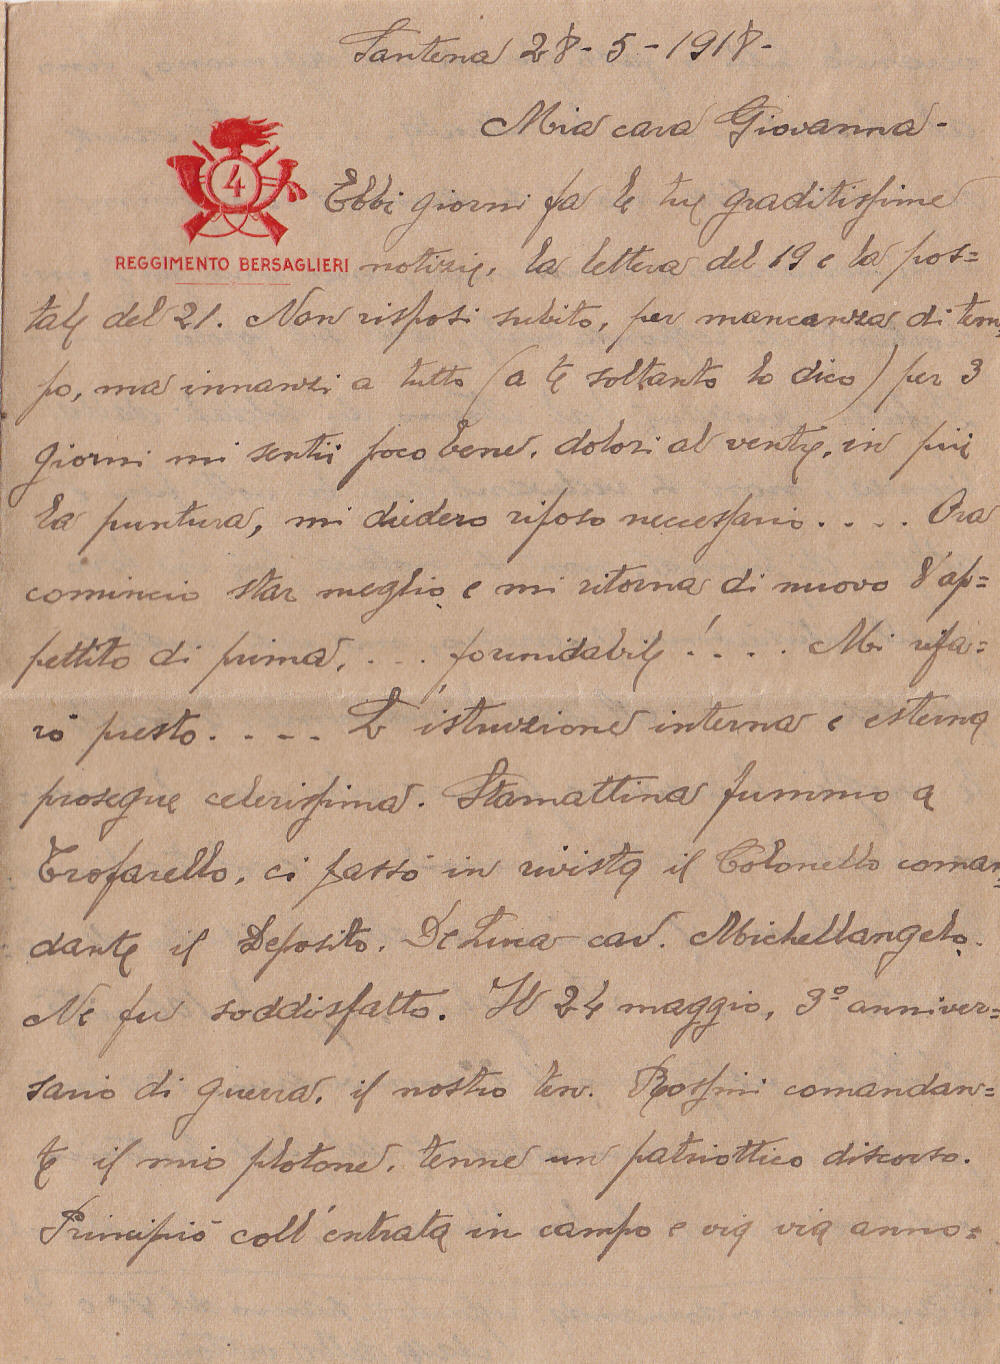 Santena 28-5-1918-
Mia cara Giovanna-
4
REGGIMENTO BERSAGLIERI
Ebbi giorni fa le tue graditissime
notizie, la lettera del 19 e la pos=
tale del 21. Non risposi subito, per mancanza di tem=
po, ma innanzi a tutto (a te soltanto lo dico) per 3
giorni mi sentii poco bene, dolori al ventre, in più
la puntura, mi diedero riposo neccessario.... Ora
comincio star meglio e mi ritorna di nuovo l'ap=
pettito di prima,... formidabile!.... Mi rifa=
rò presto.... L'istruzione interna e esterna
prosegue celerissima. Stamattina fummo a
Trofarello, ci passò in rivista il Colonello coman=
dante il Deposito, De Luca cav. Michellangelo.
Ne fu soddisfatto. Il 24 maggio, 3º anniver=
sario di guerra, il nostro ten. Rossini comandan=
te il mio plotone, tenne un patriottico discorso.
Principiò coll'entrata in campo e via via anno=